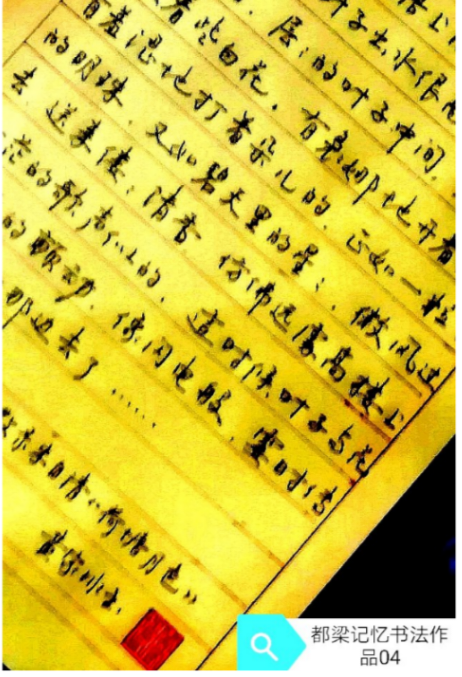 叶子出水很
层:的叶子中间，
着些白花，有袅娜地开着
有羞涩地打着朵儿的，正如一粒
的明珠，又如碧天里的星:，微风过
去，送来缕:清香，仿佛远处高楼上
茫的歌声似的，这时候叶子与花
的颤动，像闪电般，霎时传
那边去了……
录朱自清《荷塘月色》
都梁记忆书法作
品04